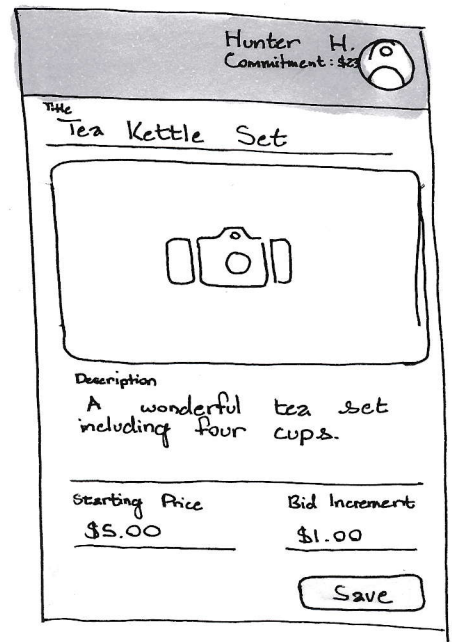 Hunter H.
Commitment: $23
Title
Tea Kettle Set
Description
A wonderful tea set
including four cups.
Starting Price
Bid Increment
$5.00
$1.00
Save